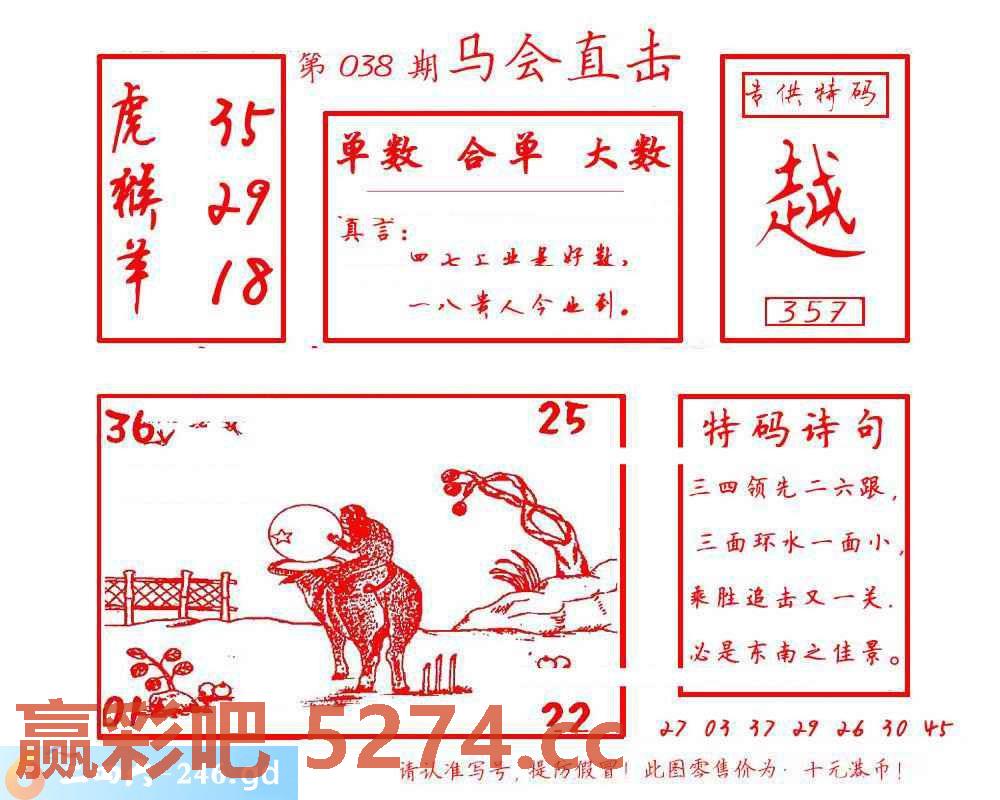 第 038 期 马会直击
虎 35
猴 29
羊 18
单数 合单 大数
真言:
四七工业是好数,
一八贵人今业到。
专供特码
越
357
36
25
01
22
特码诗句
三四领先二六跟,
三面环水一面小,
乘胜追击又一关.
必是东南之佳景。
27 03 37 29 26 30 45
赢彩吧 5274.cc
-246.gd
请认准写号,提防假冒!此图零售价为·十元港币!